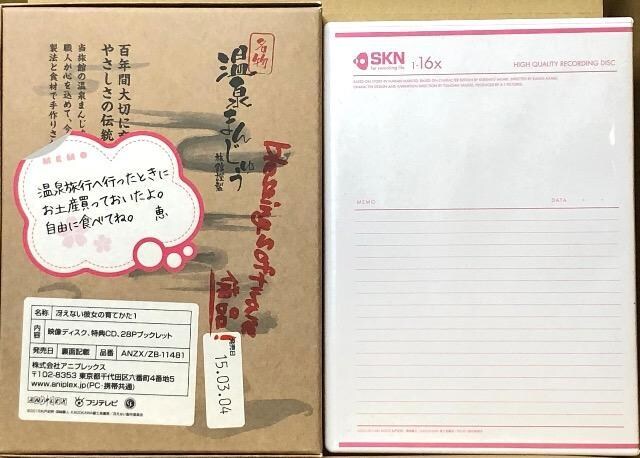 名物
温泉まんじゅう
旅館謹製
百年間大切に
やさしさの伝統
当旅館の温泉まんじ
職人が心を込めて、今
製法と食材で手作りさ
MEMO
温泉旅行へ行ったときに
お土産買っておいたよ。
自由に食べてね。 恵
blessing software
備品!
名称 冴えない彼女の育てかた1
内容 映像ディスク、特典CD、28Pブックレット
発売日 裏面記載 品番 ANZX/ZB-11481
株式会社アニプレックス
〒102-8353 東京都千代田区六番町4番地5
www.aniplex.jp(PC・携帯共通)
ANIPLEX フジテレビ
発売日
15.03.04
SKN
for recording life
1-16x
HIGH QUALITY RECORDING DISC
MEMO DATA